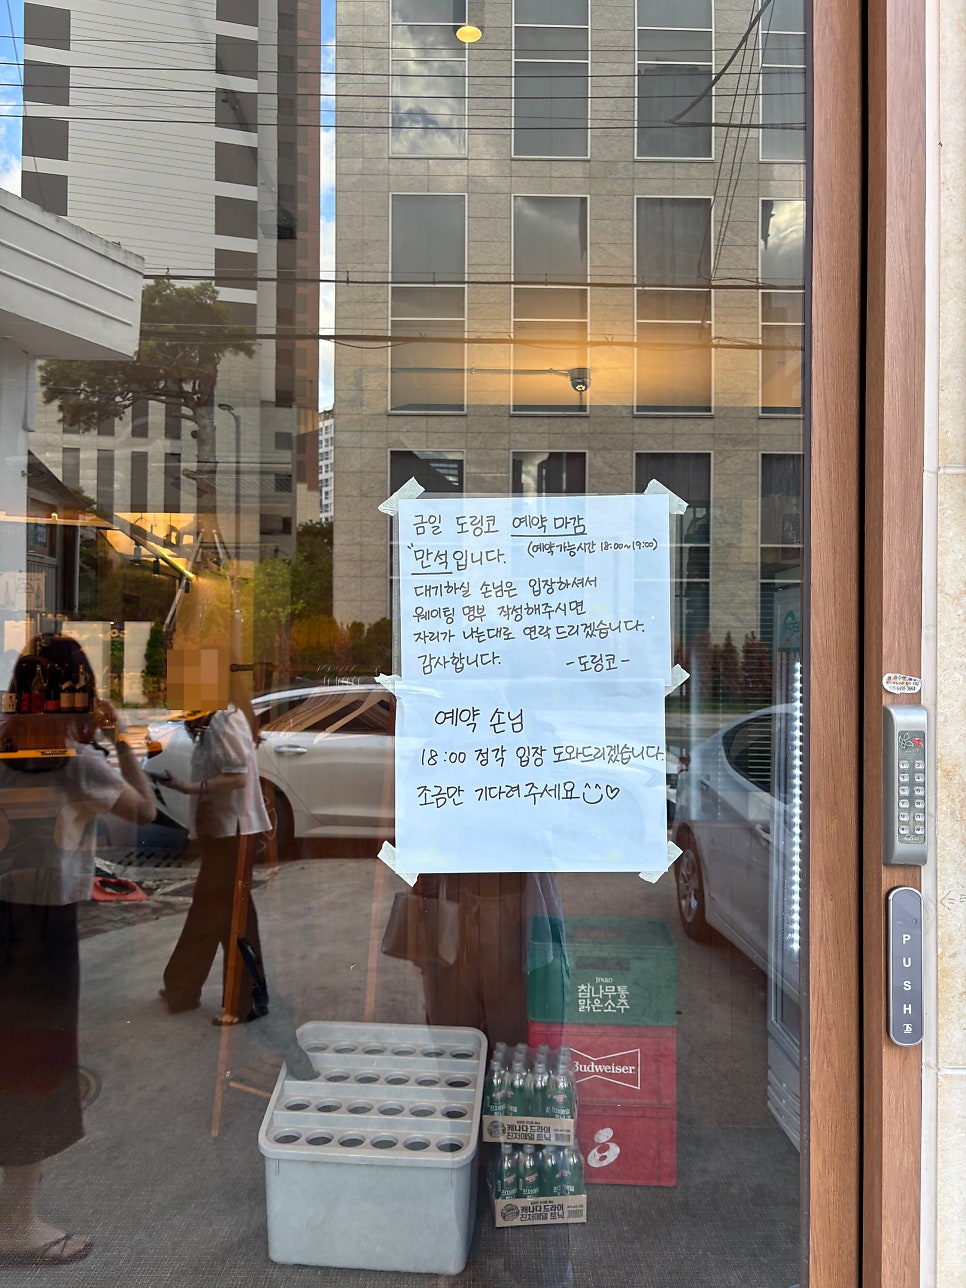 금일 도링코 예약 마감
(예약가능시간 18:00~19:00)
"만석입니다.
대기하실 손님은 입장하셔서
웨이팅 명부 작성해주시면
자리가 나는대로 연락드리겠습니다.
감사합니다. -도링코-
예약 손님
18:00 정각 입장 도와드리겠습니다.
조금만 기다려주세요
JINRO
참나무통
맑은소주
Budweiser
캐나다드라이
진저에일 토닉
캐나다드라이
진저에일 토닉
PUSH